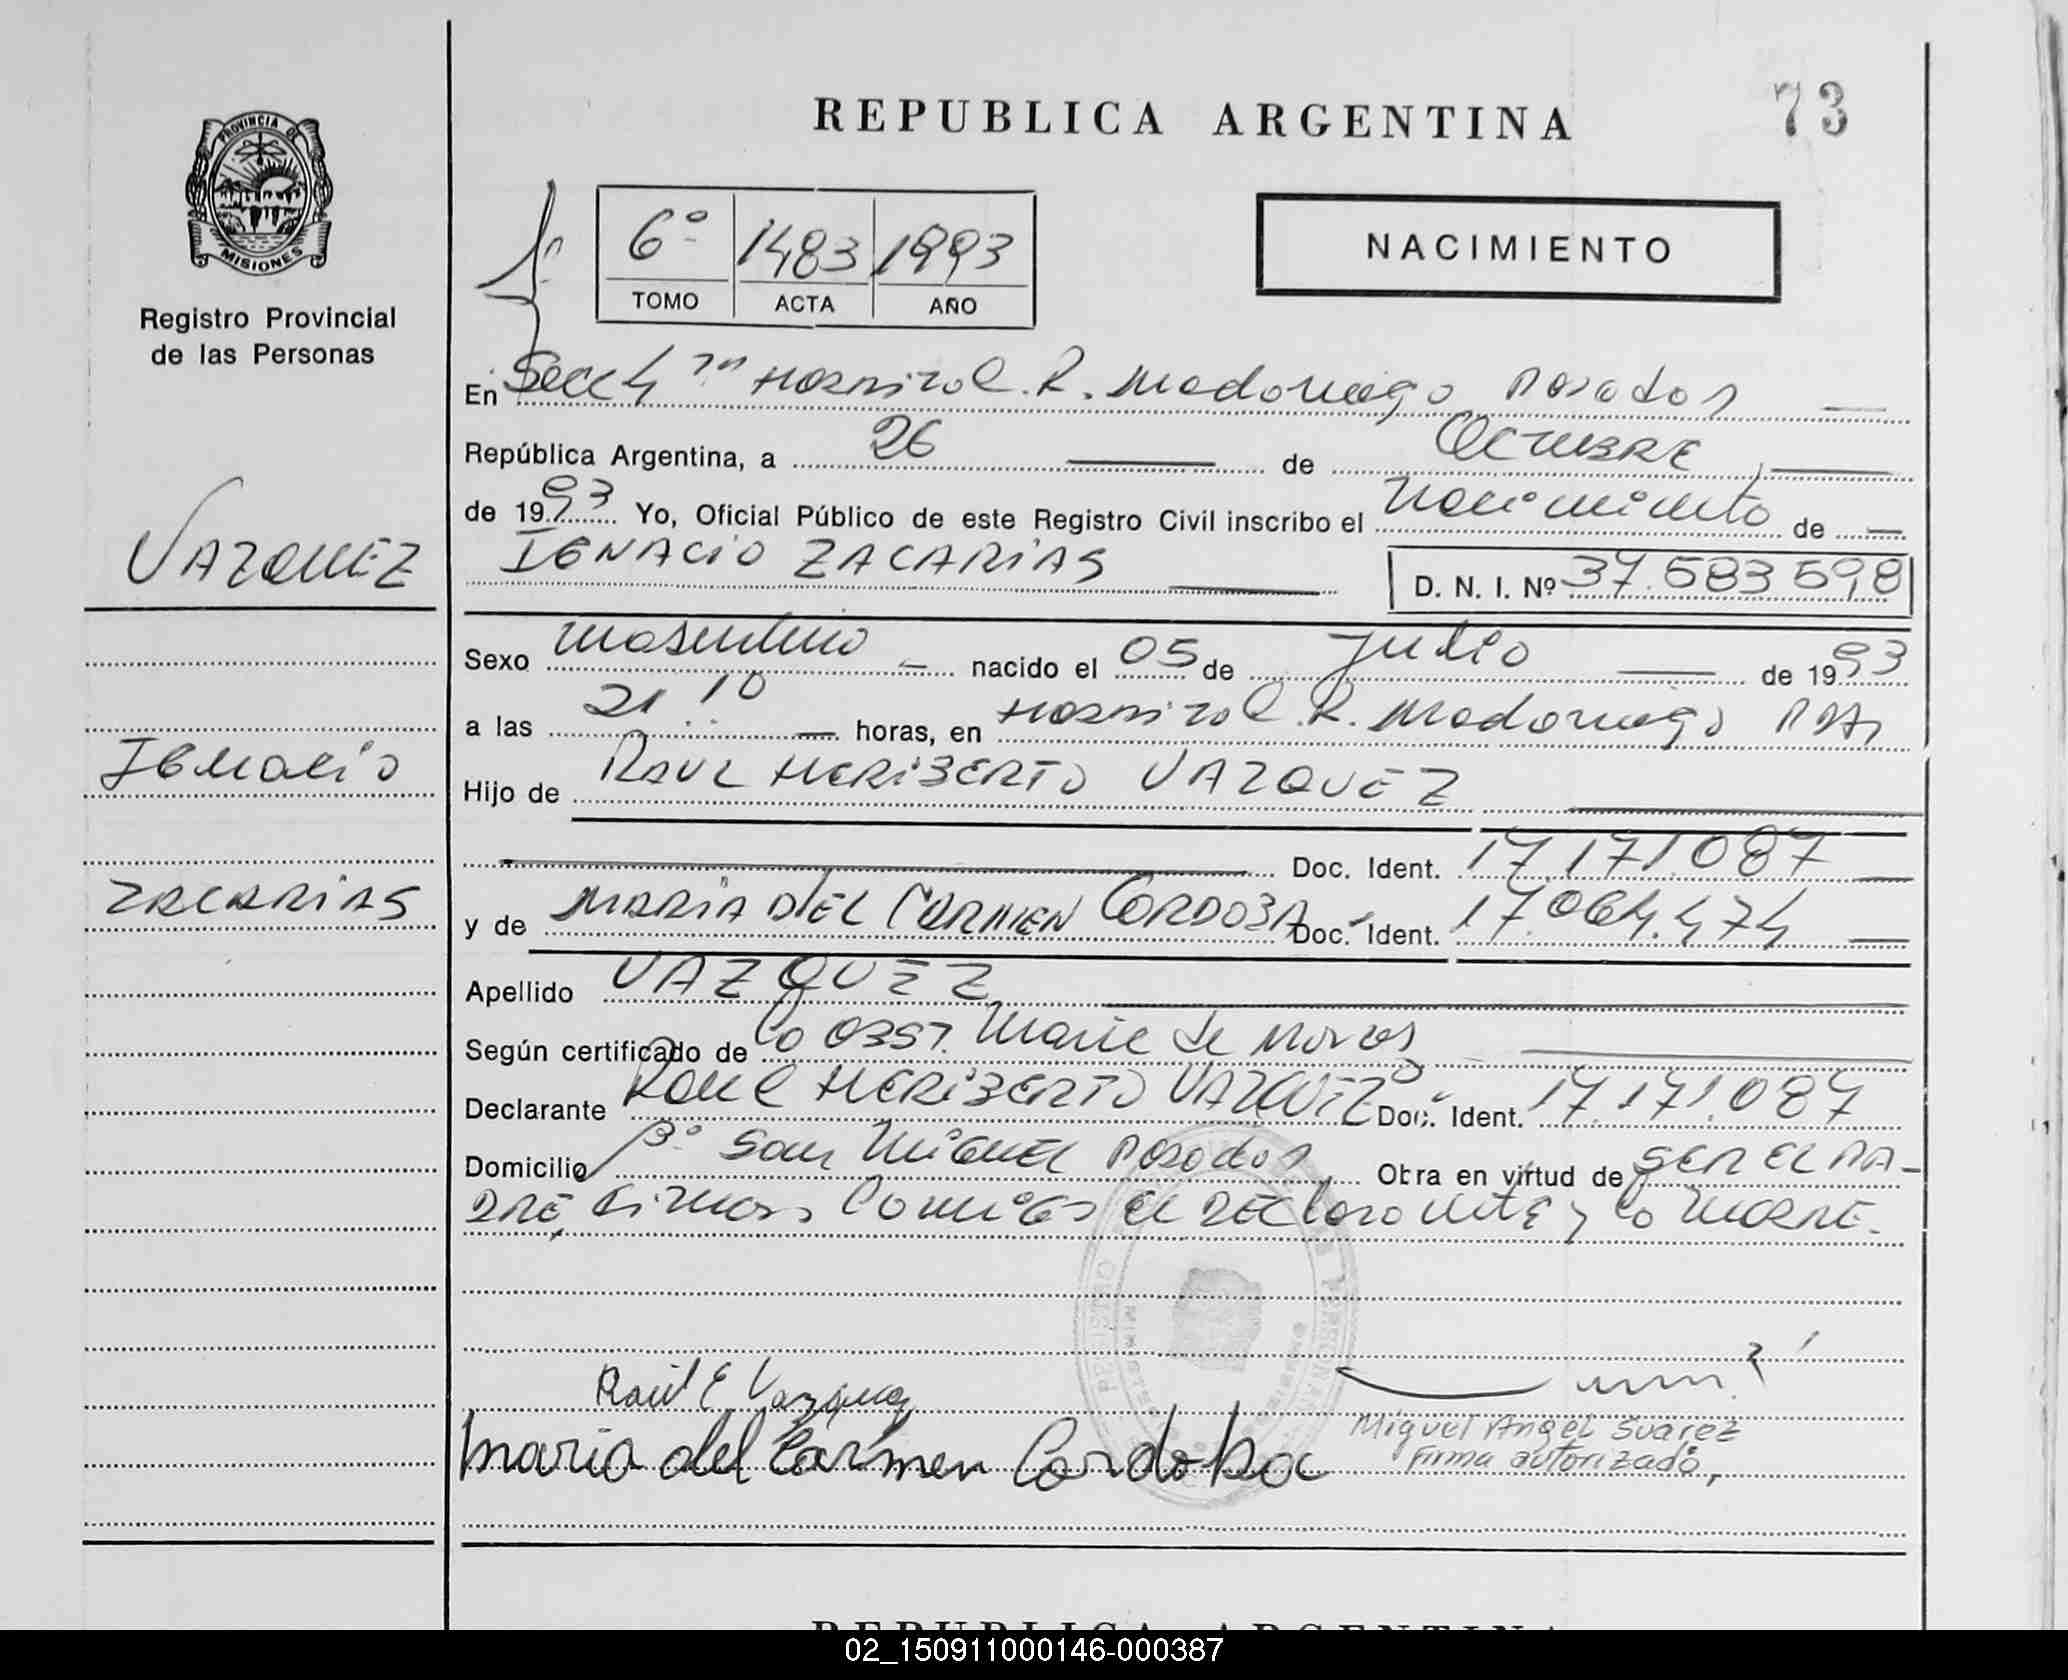 REPUBLICA ARGENTINA
73
PROVINCIA DE
MISIONES
Registro Provincial
de las Personas
6º 1483 1993
TOMO ACTA AÑO
NACIMIENTO
En Secc 4 Hospital R. Madariaga Posadas
República Argentina, a 26 de OCTUBRE
de 1993 Yo, Oficial Público de este Registro Civil inscribo el Nacimiento de
IGNACIO ZACARIAS D. N. I. Nº 37.583 598
VAZQUEZ
Sexo masculino nacido el 05 de Julio de 1993
a las 21 10 horas, en Hospital R. Madariaga Pdas
Ignacio
Hijo de RAUL HERIBERTO VAZQUEZ
Doc. Ident. 17.171.087
ZACARIAS
y de MARIA DEL CARMEN CORDOBA Doc. Ident. 17.064.474
Apellido VAZQUEZ
Según certificado de la OBST. Marie de
Declarante Raul HERIBERTO VAZQUEZ Doc. Ident. 17.171.087
Domicilio Bº San MIGUEL Posadas Obra en virtud de SER EL PA-
DRE, Firman Conmigo el DEClarante y la MADRE.
Raúl E Vazquez
Maria del Carmen Cordoba
Miguel Angel Suarez
Firma autorizada,
REPUBLICA ARGENTINA
02_150911000146-000387